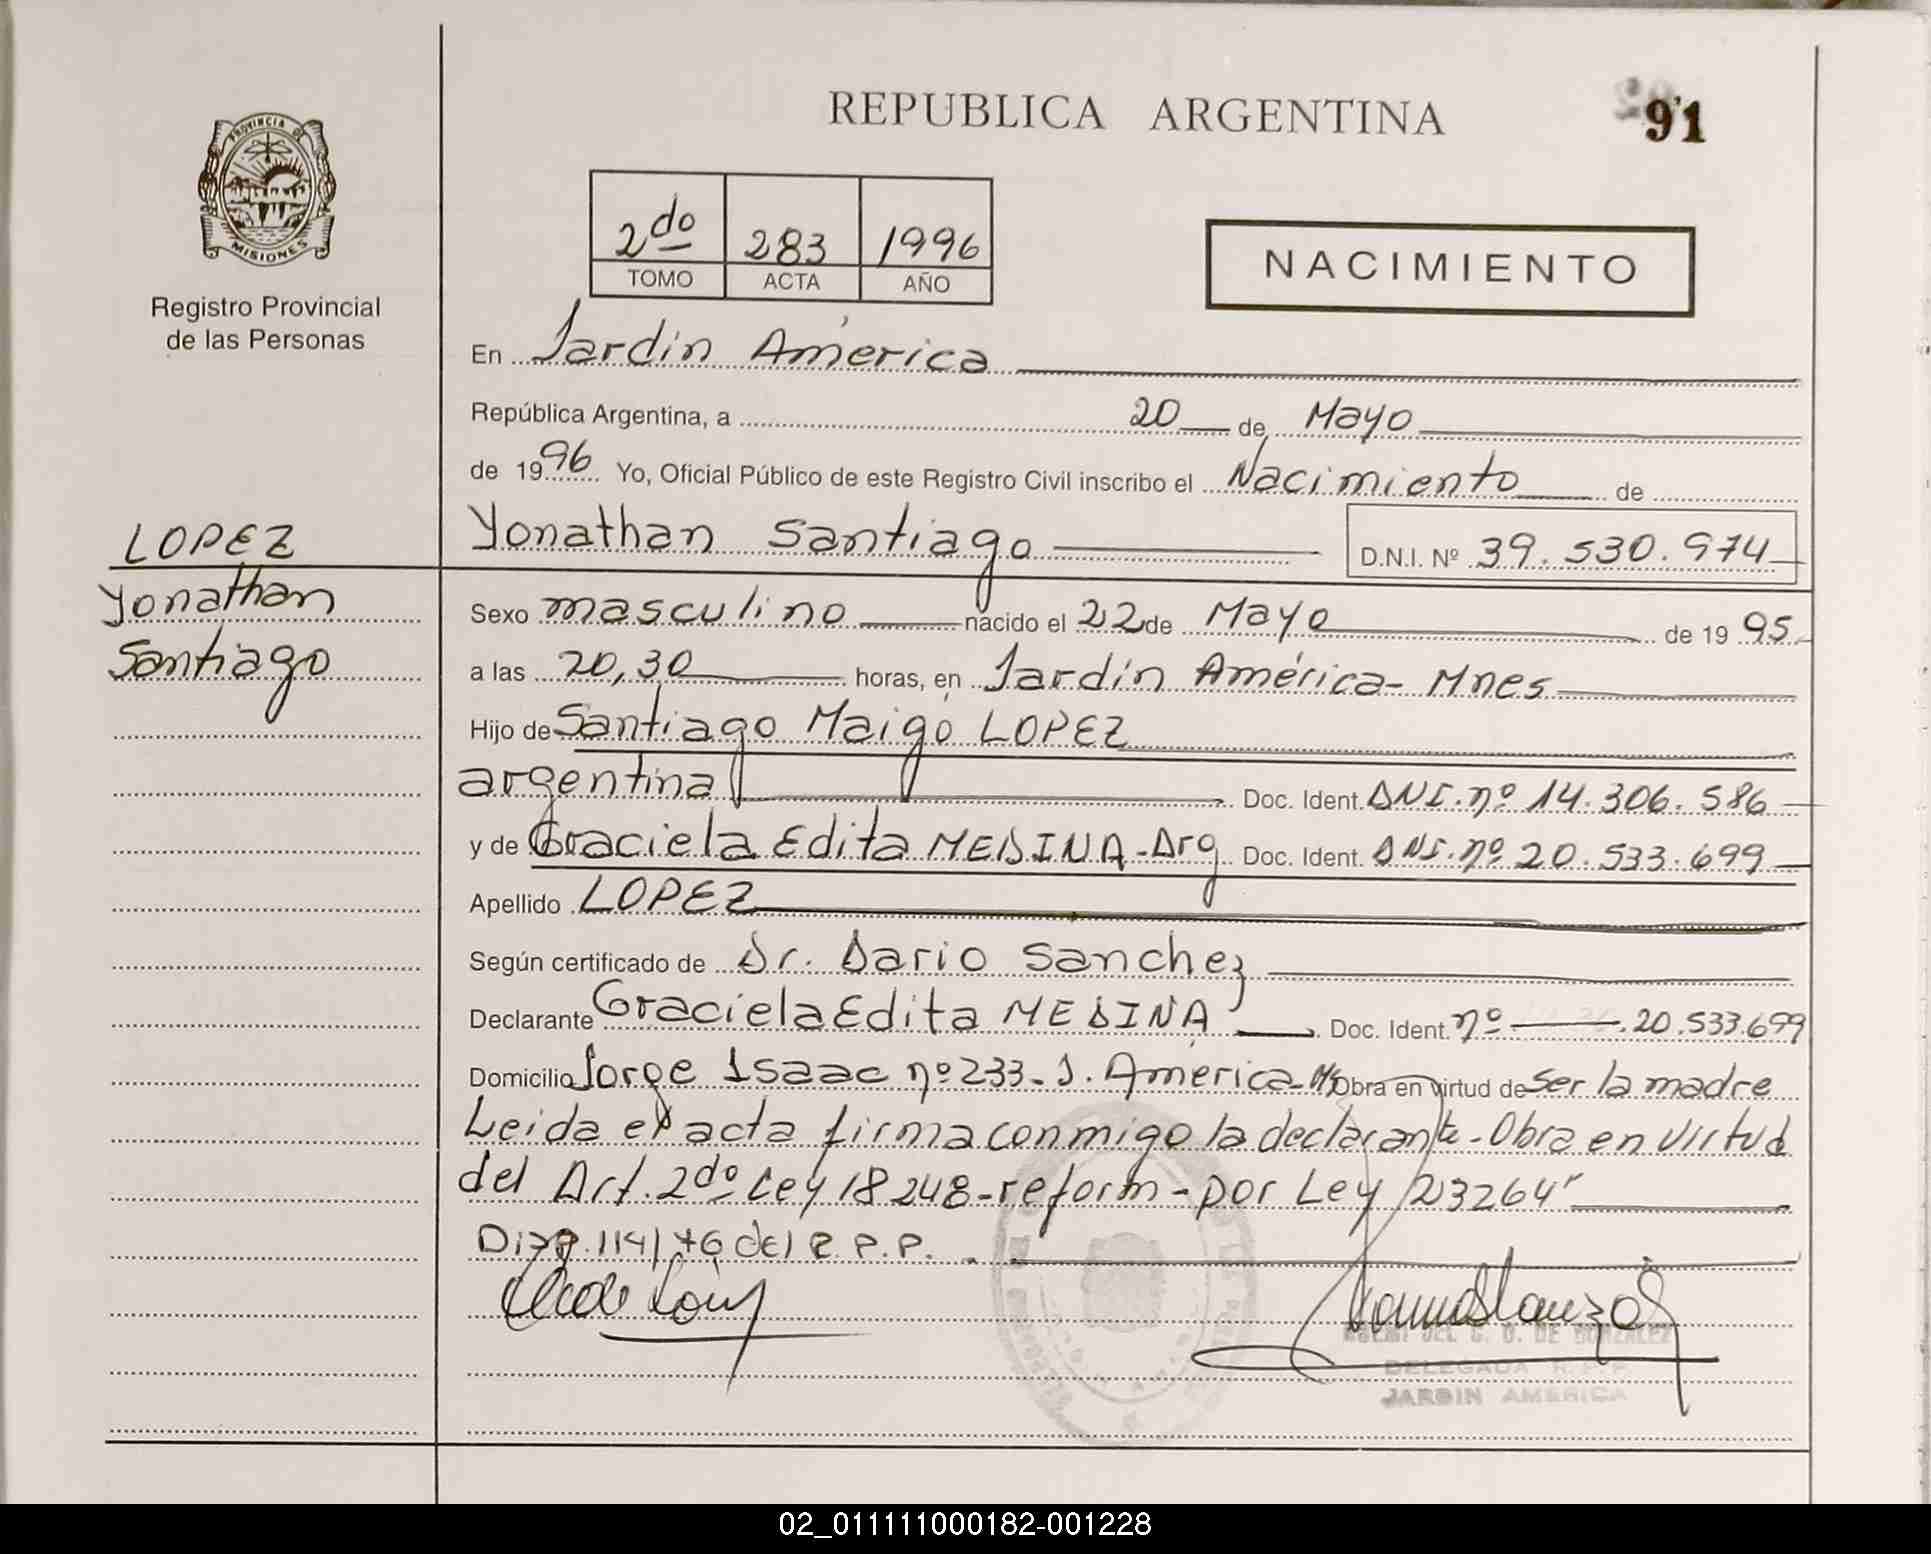 REPUBLICA ARGENTINA
91
PROVINCIA DE
MISIONES
Registro Provincial
de las Personas
2do 283 1996
TOMO ACTA AÑO
NACIMIENTO
En Jardín América
República Argentina, a 20 de Mayo
de 1996 Yo, Oficial Público de este Registro Civil inscribo el Nacimiento de
LOPEZ
Yonathan
Santiago
Yonathan Santiago D.N.I. Nº 39.530.974
Sexo masculino nacido el 22 de Mayo de 1995
a las 20,30 horas, en Jardín América - Mnes
Hijo de Santiago Maigo LOPEZ
argentina Doc. Ident. DNI. nº 14.306.586
y de Graciela Edita MEDINA - Arg Doc. Ident. DNI. nº 20.533.699
Apellido LOPEZ
Según certificado de Dr. Dario Sanchez
Declarante Graciela Edita MEDINA Doc. Ident. nº 20.533.699
Domicilio Jorge Isaac nº 233 - J. América - Obra en virtud de Ser la madre
Leida el acta firma conmigo la declarante - Obra en virtud
del Art. 2do Ley 18248 - reform - por Ley 23264
Disp. 114/76 del R.P.P.
DE GONZALEZ
DELEGADA R.P.P.
JARDIN AMERICA
02_011111000182-001228